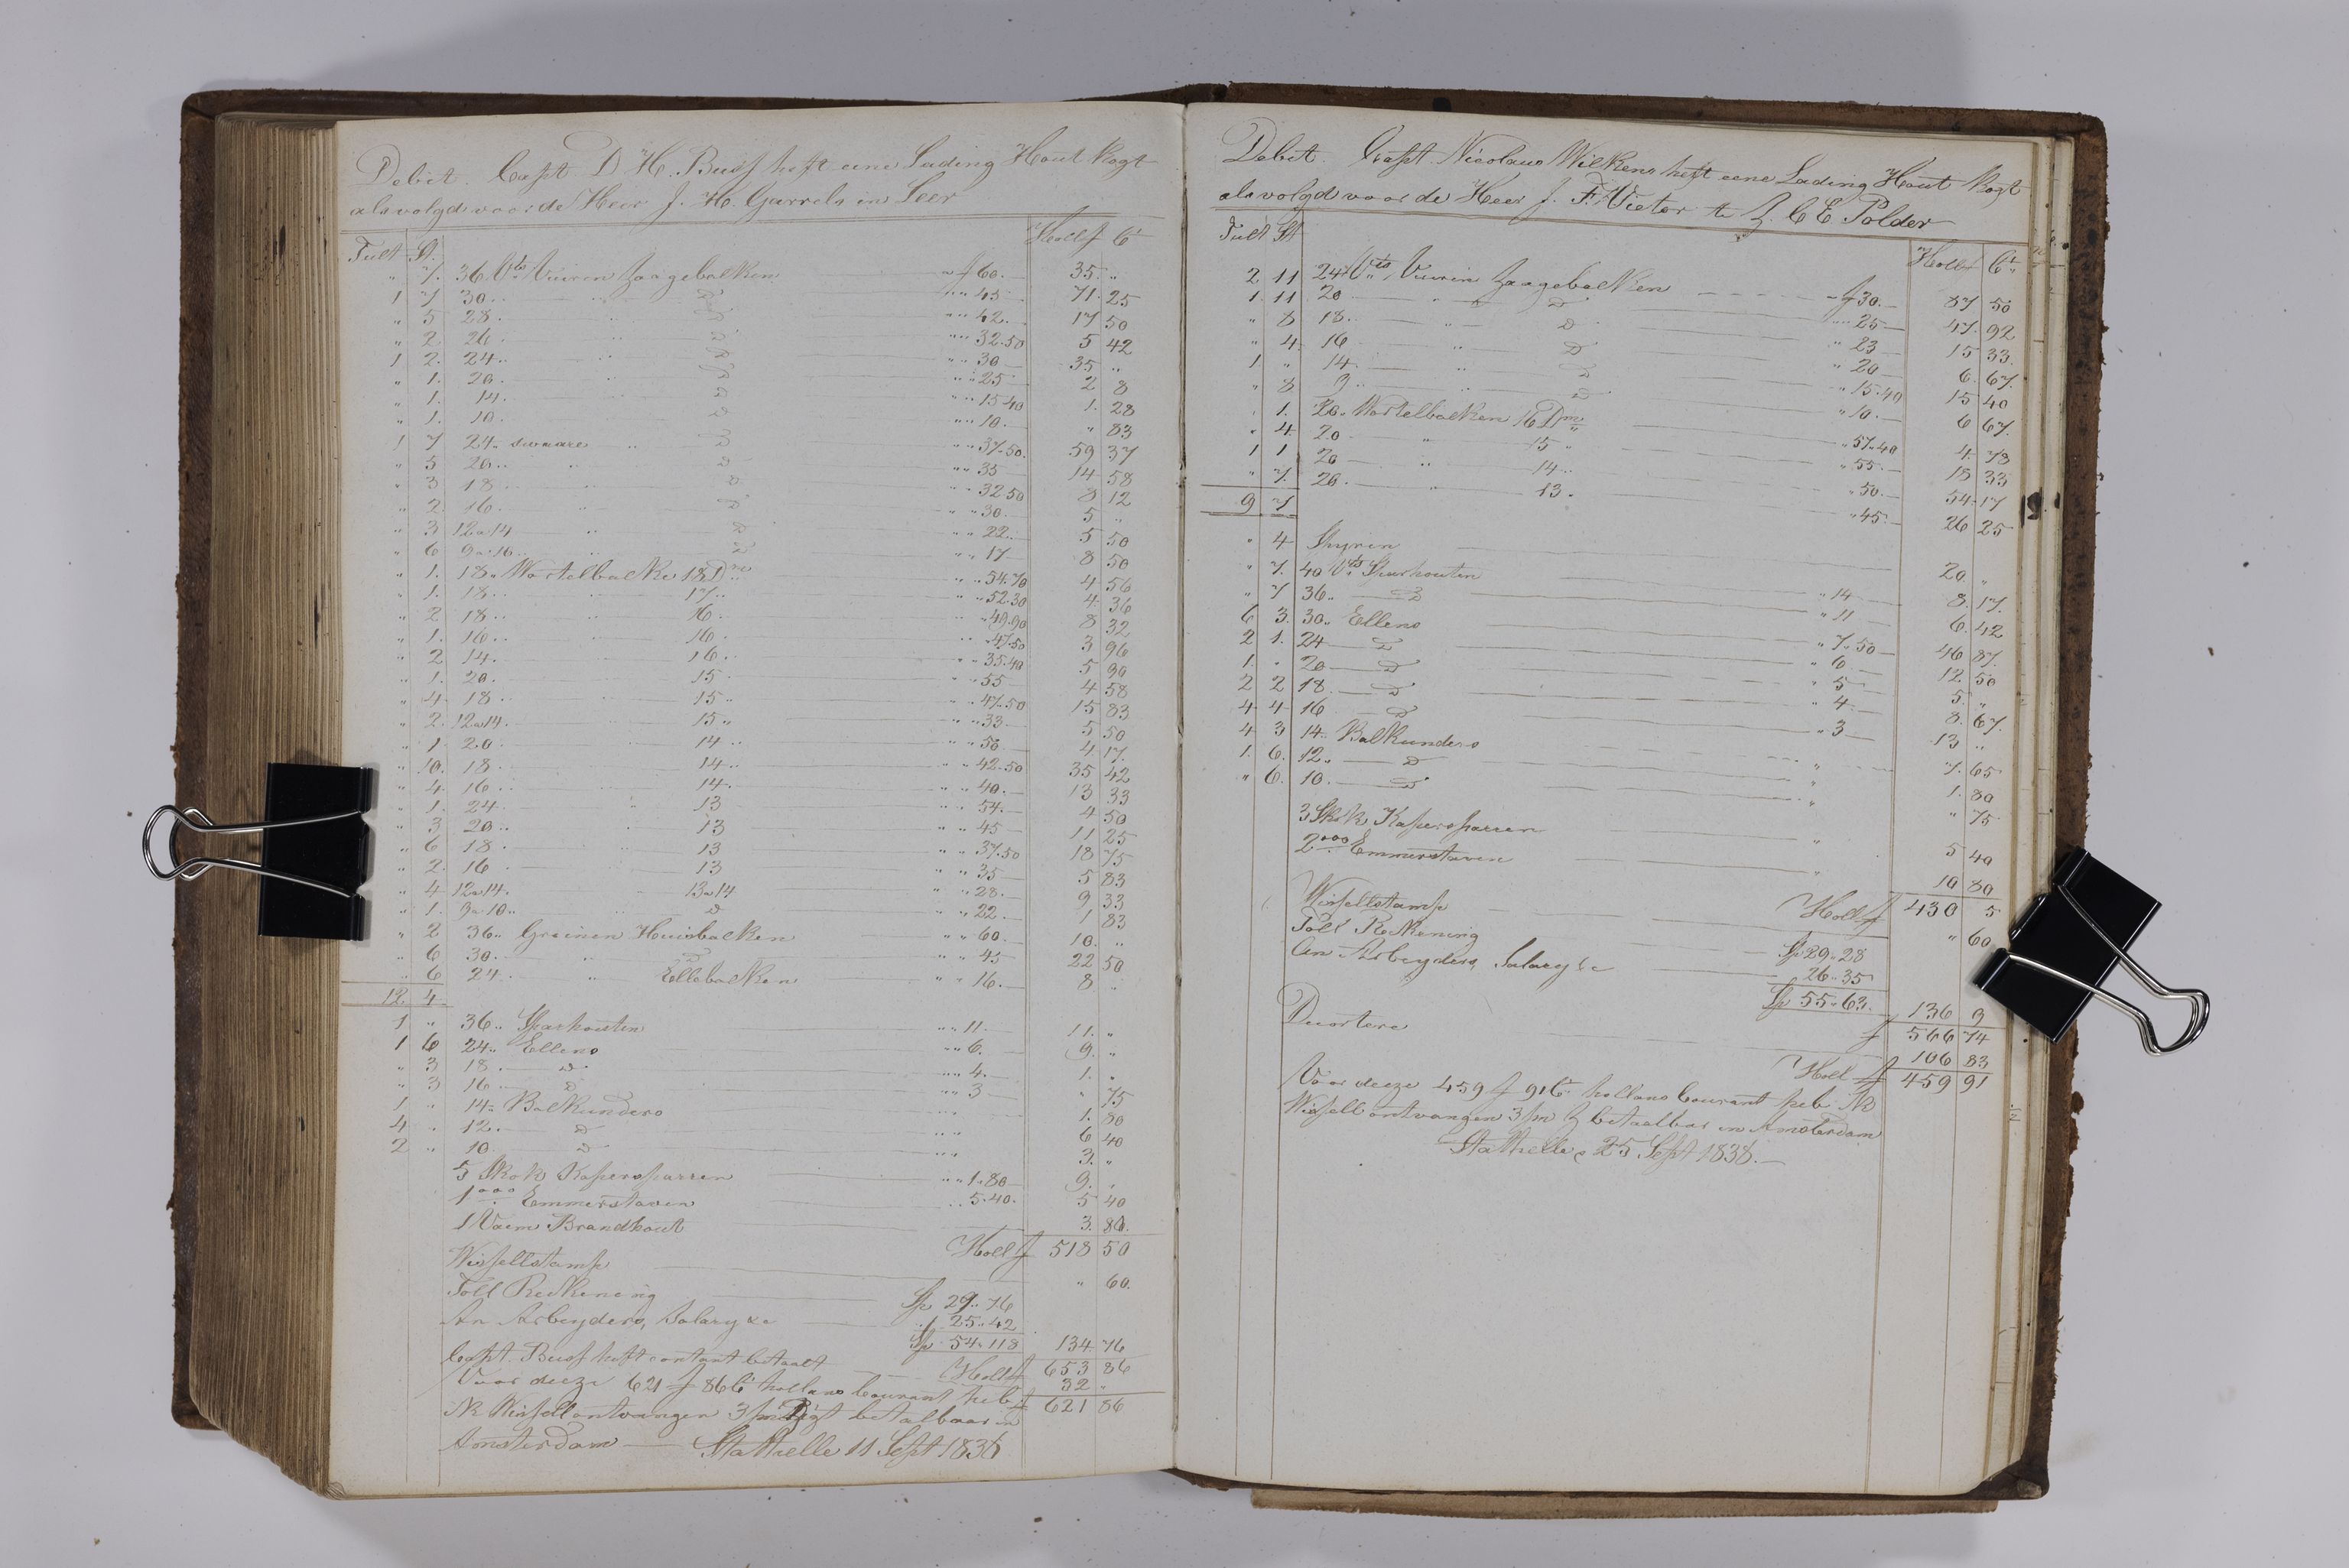 Debet. Capt. D. H. Buss heft eene Lading Hout Kogt
als volgd voor de Heer J. H. Garrels in Leer
Tult St. Holl f Ct
" 7. 36 Vts Vuiren Zaagebalken " f 60. 35 "
1 7 30 .. " D " " 45 71. 25
" 5 28 .. " D " " 42. 17 50
" 2 26 .. " D " " 32.50 5 42
1 2. 24 .. " D " " 30 35 "
" 1. 20 . " D " " 25 2 8
" 1. 14. " D " " 15 40 1. 28
" 1. 10. " D " " 10. " 83
1 7 24 .. swaare " D " " 37.50. 59 37
" 5 20 .. " D " " 35 14 58
" 3 18 .. " D " " 32.50 8 12
" 2. 16. " D " " 30. 5 "
" 3 12 a 14 " D " " 22. 5 50
" 6 9 a 10 .. " D " " 17 8 50
" 1. 18 " Wortelbalke 18 Dm " " 54.70 4 56
" 1. 18 .. " 17 .. " " 52.30 4 36
" 2 18 .. " 16 . " " 49.90 8 32
" 1. 16 .. " 16 . " " 47.50 3 96
" 2 14. " 16 . " " 35.40 5 90
" 1. 20. " 15 . " " 55 4 58
" 4 18 .. " 15 .. " " 47.50 15 83
" 2. 12 a 14. " 15 .. " " 33 5 50
" 1. 20 .. " 14 .. " " 50 4 17.
" 10. 18 . " 14 .. " " 42.50 35 42
" 4. 16 . " 14 .. " " 40. 13 33
" 1. 24 . " 13 " " 54. 4 50
" 3 20 .. " 13 " " 45 11 25
" 6 18 .. " 13 " " 37.50 18 75
" 2. 16 " 13 " " 35 5 83
" 4 12 a 14. " 13 a 14 " " 28. 9 33
" 1. 9 a 10 .. " D " " 22. 1 83
" 2 36 .. Greinen Huisbalken " " 60. 10. "
" 6 30 .. " D " " 45 22 50
" 6 24 . " Ellebalken " " 16. 8 "
12. 4
1 " 36 .. Sparhouten " " 11. 11. "
1 6 24 .. Ellens " " 6. 9. "
" 3 18 . D " " 4. 1. "
" 3 16 D " " 3 " 75
1 " 14 " Balkunders " " 1. 80
4 " 12. D " " 6 40
2 " 10. D " " 3. "
5 Skok Kapersparren " " 1.80 9. "
1000 Emmerstaven " " 5.40. 5 40
1 Vaem Brandhout 3. 80.
Holl f 518 50
Wissellstamp " 60.
Toll Reckening Sp 29.. 76
An Arbeyders, Salary &c " 25.. 42
Sp 54. 118 134 76
Holl f 653 86
Capt. Buss heft contant betaalt 32 "
Voor deeze 621 f 86 Ct hollans Courant heb f 621 86
ik Wissell ontvangen 3 m Zigt betaalbaar in
Amsterdam Stathelle 11 Sept 1838
Debet. Capt. Nicolaus Wilkens heft eene Lading Hout Kogt
als volgd voor de Heer J. F. Vietor te Z. C E Polder
Tult St Holl f Ct
2 11 24 Vts Vuiren Zaagebalken " f 30. 87 50
1. 11 20 " D " 25 47. 92
" 8 18. " D " 23 15 33.
" 4. 16 " D " 20 6. 67.
1. " 14. " D " 15.40 15 40
" 8 9 .. " D " 10. 6 67.
" 1. 20 " Wortelbalken 16 Dm " 57.40 4. 78
" 4. 20 " 15 " " 55 18 33
1 1 20 " 14 .. " 50. 54. 17
" 7. 20. " 13. " 45. 26 25
9 7
" 4 Spyren 20. "
" 7. 40 Vts Sparhouten " 14 8. 17.
" 7 36 .. D " 11 6. 42
6 3. 30 .. Ellens " 7.50 46 87.
2 1. 24 D " 6 12 50
1. " 20 D " 5 5. "
2 2 18. D " 4. 8. 67.
4 4 16 D " 3 13 "
4 3 14 .. Balkunders " 7. 65
1. 6. 12 .. D " 1. 80
" 6. 10. D " " 75
3 Skok Kapersparren " 5 40
2000 Emmerstaven " 10 80
Holl f 430 5
Wissellstamp " 60
Toll Reckening Sp 29.. 28
An Arbeyders, Salary &c 26.. 35
Sp 55.. 63. 136 9
f 566 74
Deortere 106 83
Holl f 459 91
Voor deeze 459 f 91 Ct hollans Courant heb ik
Wissell ontvangen 3 m Z betaalbar in Amsterdam
Stathelle 25 Sept 1838.